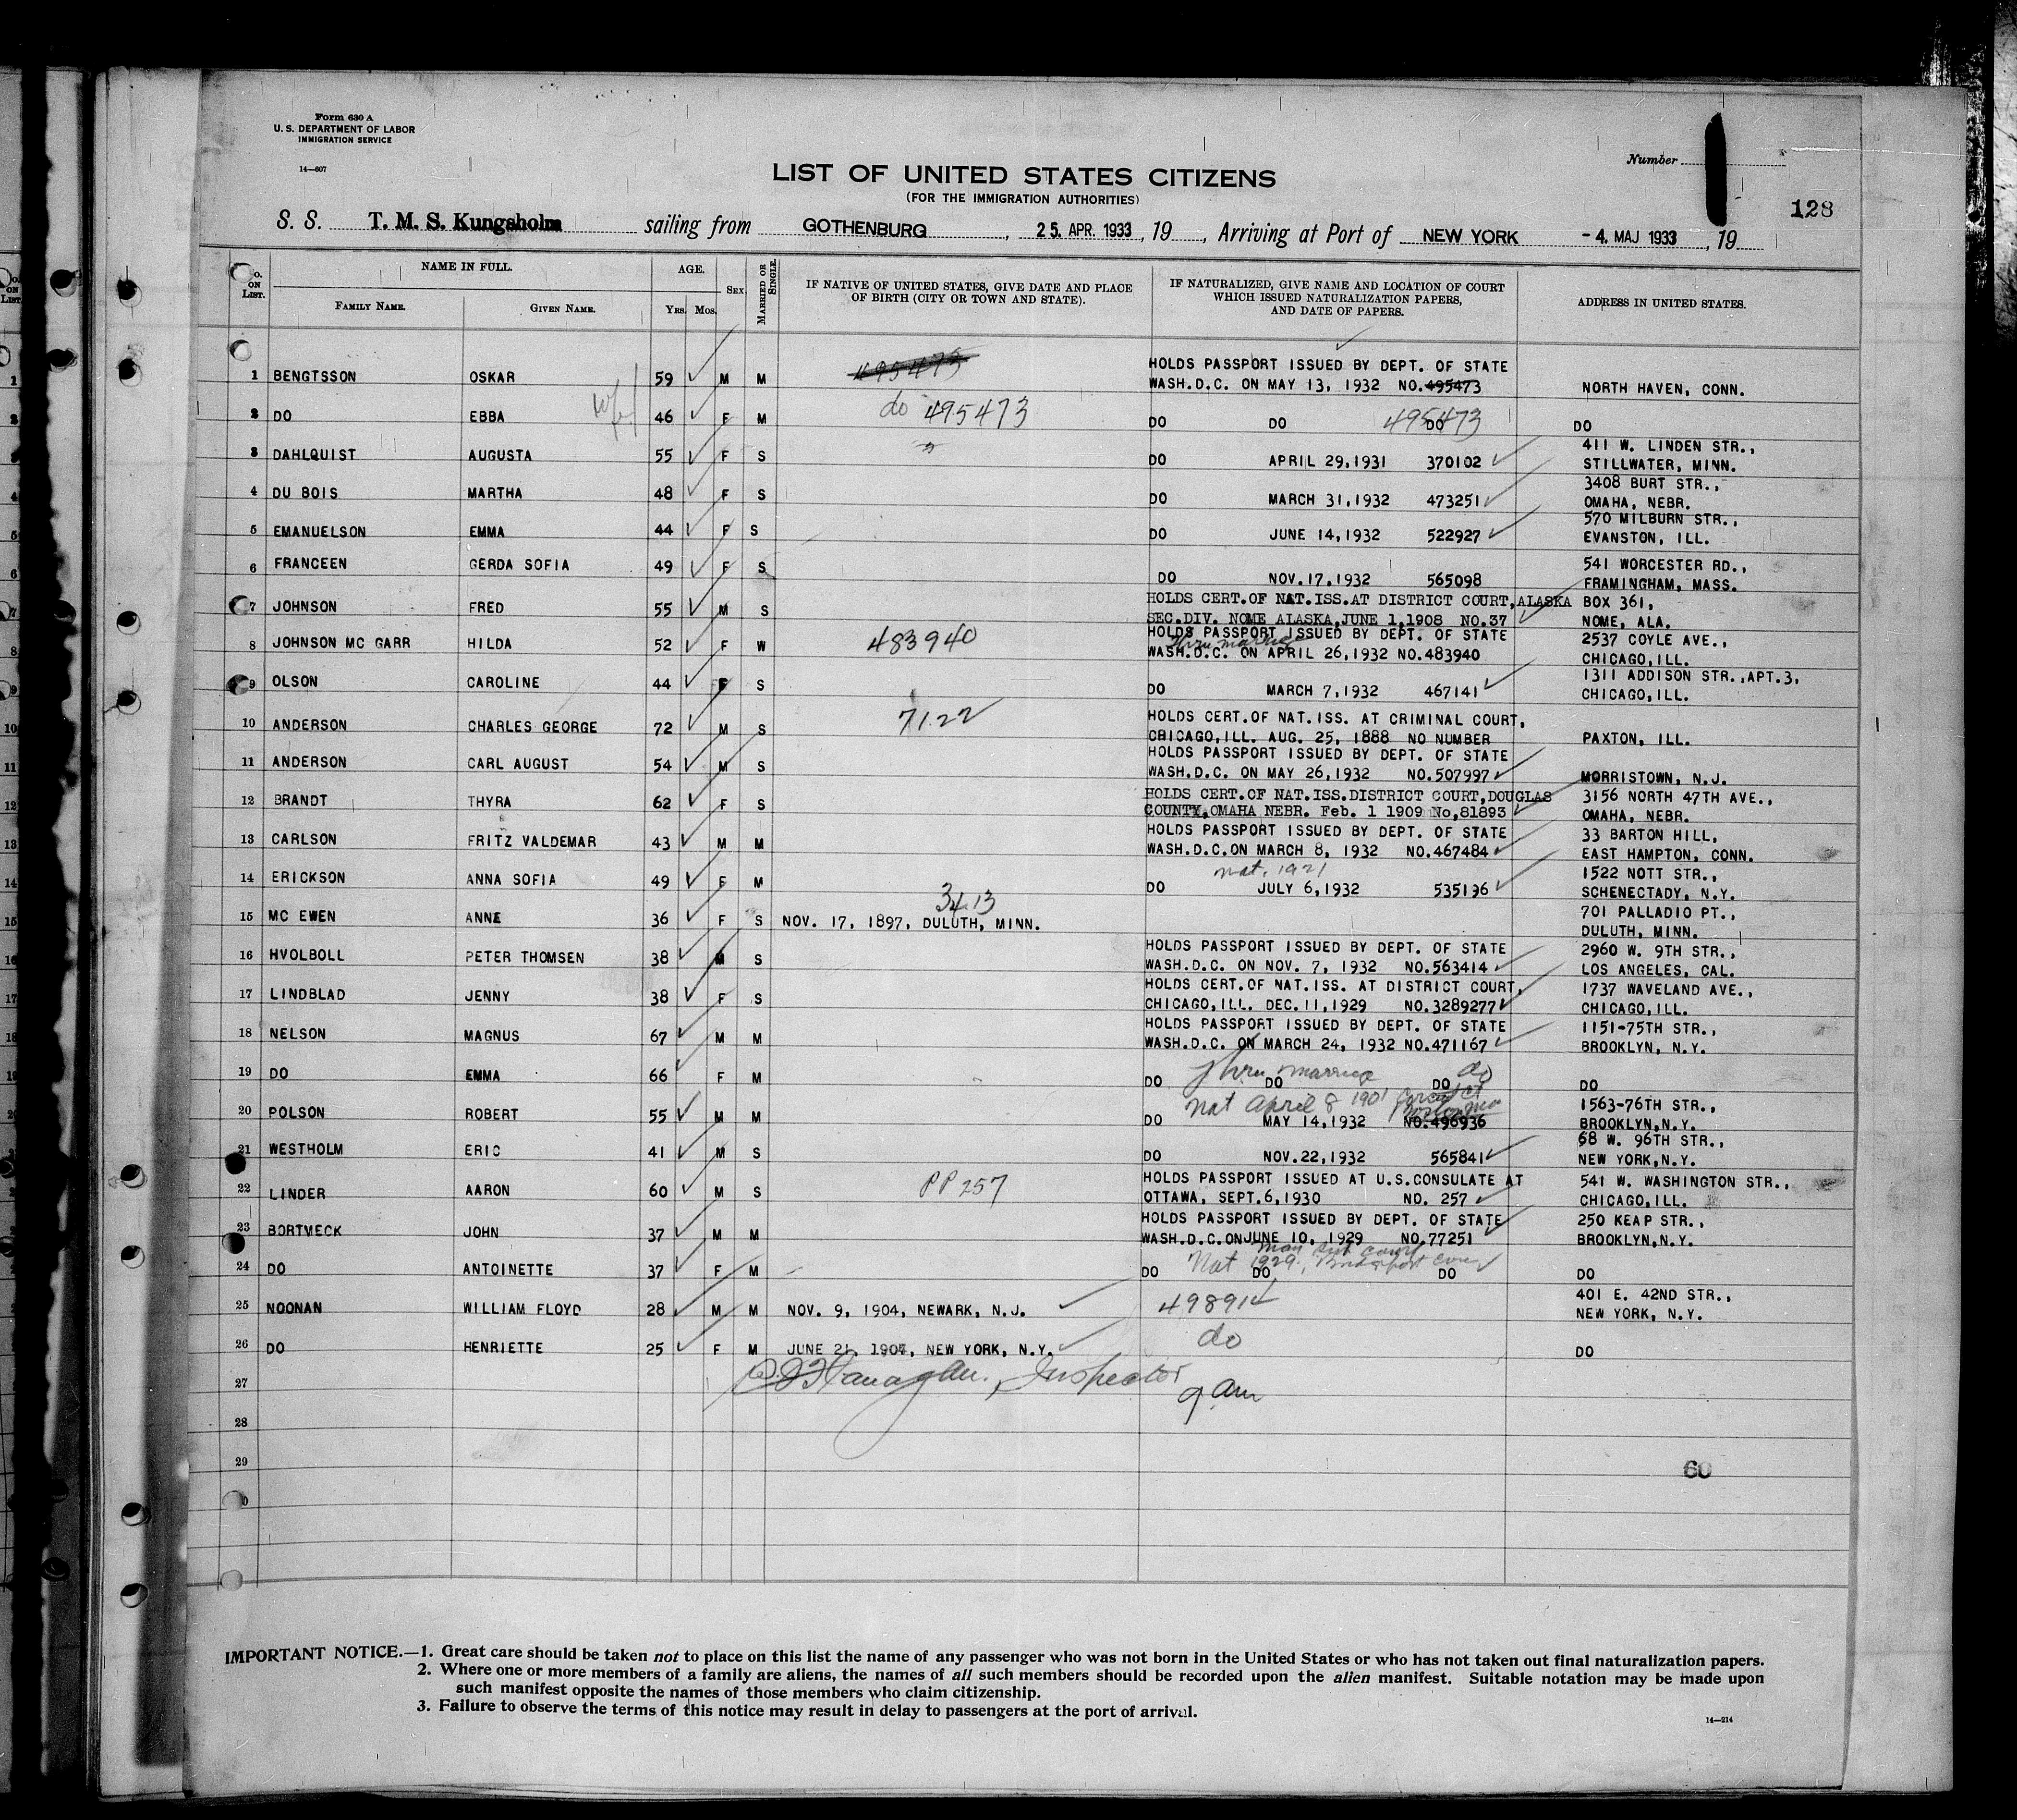 Form 630 A
U. S. DEPARTMENT OF LABOR
IMMIGRATION SERVICE
14—607
Number
LIST OF UNITED STATES CITIZENS
(FOR THE IMMIGRATION AUTHORITIES)
128
S. S. T. M. S. Kungsholm sailing from GOTHENBURG, 25. APR. 1933, 19 , Arriving at Port of NEW YORK - 4. MAJ 1933, 19
NO. ON LIST. NAME IN FULL. FAMILY NAME. GIVEN NAME. AGE. YRS. MOS. SEX MARRIED OR SINGLE. IF NATIVE OF UNITED STATES, GIVE DATE AND PLACE OF BIRTH (CITY OR TOWN AND STATE). IF NATURALIZED, GIVE NAME AND LOCATION OF COURT WHICH ISSUED NATURALIZATION PAPERS, AND DATE OF PAPERS. ADDRESS IN UNITED STATES.
1 BENGTSSON OSKAR 59 M M 495473 HOLDS PASSPORT ISSUED BY DEPT. OF STATE
WASH.D.C. ON MAY 13, 1932 NO.495473 NORTH HAVEN, CONN.
2 DO EBBA wf 46 F M do 495473 DO DO DO 495473 DO
3 DAHLQUIST AUGUSTA 55 F S DO APRIL 29,1931 370102 411 W. LINDEN STR.,
STILLWATER, MINN.
4 DU BOIS MARTHA 48 F S DO MARCH 31,1932 473251 3408 BURT STR.,
OMAHA, NEBR.
5 EMANUELSON EMMA 44 F S DO JUNE 14,1932 522927 570 MILBURN STR.,
EVANSTON, ILL.
6 FRANCEEN GERDA SOFIA 49 F S DO NOV.17,1932 565098 541 WORCESTER RD.,
FRAMINGHAM, MASS.
7 JOHNSON FRED 55 M S HOLDS CERT.OF NAT.ISS.AT DISTRICT COURT,ALASKA BOX 361,
SEC.DIV. NOME ALASKA,JUNE 1,1908 NO.37 NOME, ALA.
8 JOHNSON MC GARR HILDA 52 F W 483940 HOLDS PASSPORT ISSUED BY DEPT. OF STATE 2537 COYLE AVE.,
thru marriage
WASH.D.C. ON APRIL 26,1932 NO.483940 CHICAGO,ILL.
9 OLSON CAROLINE 44 F S DO MARCH 7,1932 467141 1311 ADDISON STR.,APT.3,
CHICAGO,ILL.
10 ANDERSON CHARLES GEORGE 72 M S 7122 HOLDS CERT.OF NAT.ISS. AT CRIMINAL COURT,
CHICAGO,ILL. AUG. 25, 1888 NO NUMBER PAXTON, ILL.
11 ANDERSON CARL AUGUST 54 M S HOLDS PASSPORT ISSUED BY DEPT. OF STATE
WASH.D.C. ON MAY 26,1932 NO.507997 MORRISTOWN, N.J.
12 BRANDT THYRA 62 F S HOLDS CERT.OF NAT.ISS.DISTRICT COURT,DOUGLAS 3156 NORTH 47TH AVE.,
COUNTY,OMAHA NEBR. Feb. 1 1909 No,81893 OMAHA, NEBR.
13 CARLSON FRITZ VALDEMAR 43 M M HOLDS PASSPORT ISSUED BY DEPT. OF STATE 33 BARTON HILL,
WASH.D.C.ON MARCH 8, 1932 NO.467484 EAST HAMPTON, CONN.
nat. 1921
14 ERICKSON ANNA SOFIA 49 F M DO JULY 6,1932 535136 1522 NOTT STR.,
SCHENECTADY, N.Y.
3413
15 MC EWEN ANNE 36 F S NOV. 17, 1897, DULUTH, MINN. 701 PALLADIO PT.,
DULUTH, MINN.
16 HVOLBOLL PETER THOMSEN 38 M S HOLDS PASSPORT ISSUED BY DEPT. OF STATE 2960 W. 9TH STR.,
WASH.D.C. ON NOV. 7, 1932 NO.563414 LOS ANGELES, CAL.
17 LINDBLAD JENNY 38 F S HOLDS CERT.OF NAT.ISS. AT DISTRICT COURT, 1737 WAVELAND AVE.,
CHICAGO,ILL. DEC.11,1929 NO.3289277 CHICAGO,ILL.
18 NELSON MAGNUS 67 M M HOLDS PASSPORT ISSUED BY DEPT. OF STATE 1151-75TH STR.,
WASH.D.C. ON MARCH 24, 1932 NO.471167 BROOKLYN, N.Y.
19 DO EMMA 66 F M DO DO DO DO
thru marriage do
nat April 8 1901
20 POLSON ROBERT 55 M M DO MAY 14,1932 NO.496936 1563-76TH STR.,
BROOKLYN,N.Y.
21 WESTHOLM ERIC 41 M S DO NOV.22,1932 565841 68 W. 96TH STR.,
NEW YORK,N.Y.
22 LINDER AARON 60 M S PP 257 HOLDS PASSPORT ISSUED AT U.S.CONSULATE AT 541 W. WASHINGTON STR.,
OTTAWA, SEPT.6,1930 NO. 257 CHICAGO,ILL.
23 BORTMECK JOHN 37 M M HOLDS PASSPORT ISSUED BY DEPT. OF STATE 250 KEAP STR.,
WASH.D.C.ON JUNE 10, 1929 NO.77251 BROOKLYN,N.Y.
24 DO ANTOINETTE 37 F M DO DO DO DO
Nat 1929
25 NOONAN WILLIAM FLOYD 28 M M NOV. 9, 1904, NEWARK, N.J. 498914 401 E. 42ND STR.,
NEW YORK, N.Y.
26 DO HENRIETTE 25 F M JUNE 21, 1907, NEW YORK, N.Y. do DO
27 Flanaghan, Inspector
9 am
28
29
60
IMPORTANT NOTICE.—1. Great care should be taken not to place on this list the name of any passenger who was not born in the United States or who has not taken out final naturalization papers.
2. Where one or more members of a family are aliens, the names of all such members should be recorded upon the alien manifest. Suitable notation may be made upon
such manifest opposite the names of those members who claim citizenship.
3. Failure to observe the terms of this notice may result in delay to passengers at the port of arrival.
14—214